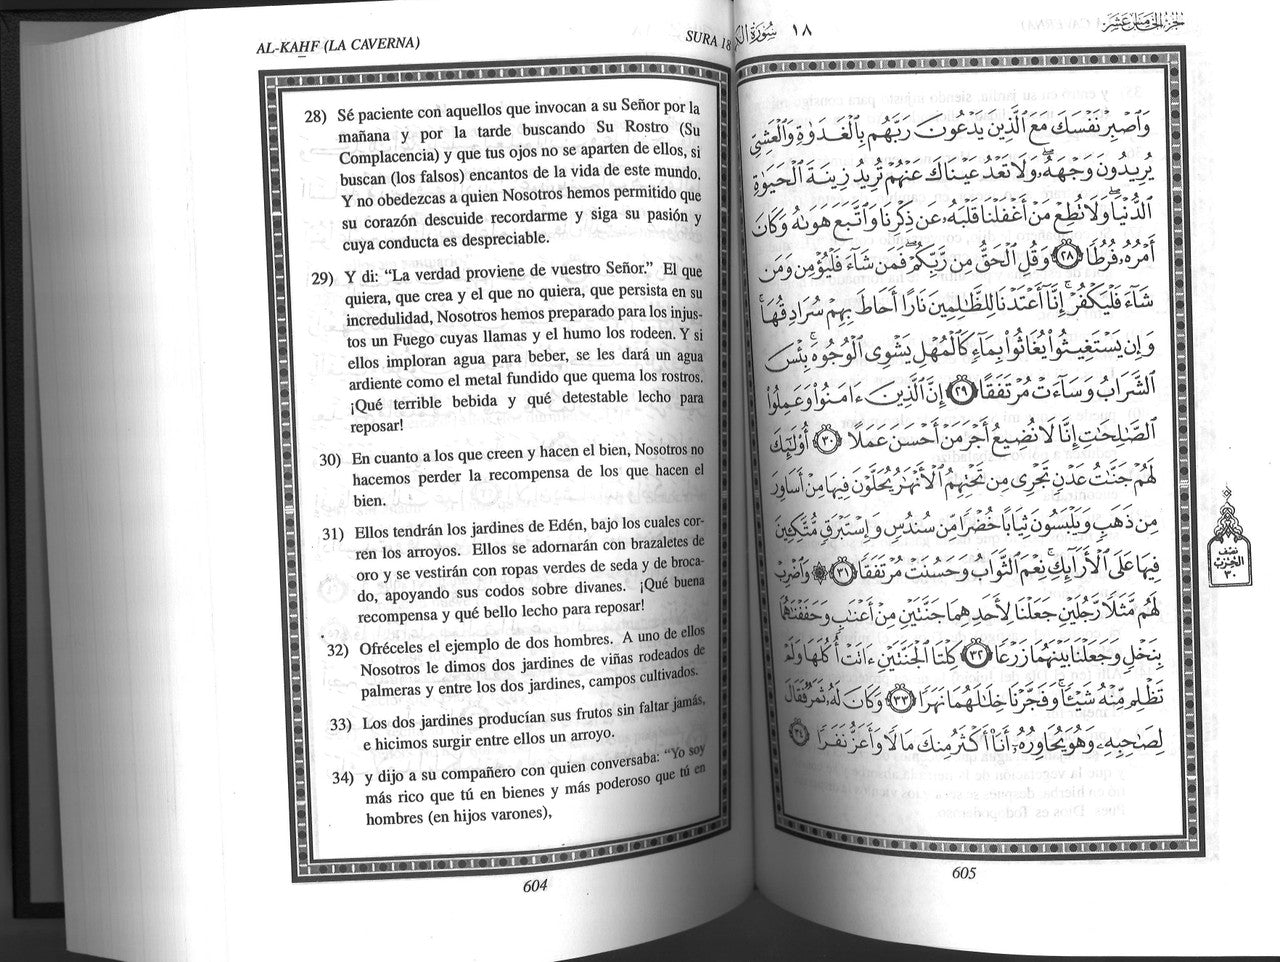 AL-KAHF (LA CAVERNA)
SURA 18
28) Sé paciente con aquellos que invocan a su Señor por la
mañana y por la tarde buscando Su Rostro (Su
Complacencia) y que tus ojos no se aparten de ellos, si
buscan (los falsos) encantos de la vida de este mundo.
Y no obedezcas a quien Nosotros hemos permitido que
su corazón descuide recordarme y siga su pasión y
cuya conducta es despreciable.
29) Y di: “La verdad proviene de vuestro Señor.” El que
quiera, que crea y el que no quiera, que persista en su
incredulidad, Nosotros hemos preparado para los injus-
tos un Fuego cuyas llamas y el humo los rodeen. Y si
ellos imploran agua para beber, se les dará un agua
ardiente como el metal fundido que quema los rostros.
¡Qué terrible bebida y qué detestable lecho para
reposar!
30) En cuanto a los que creen y hacen el bien, Nosotros no
hacemos perder la recompensa de los que hacen el
bien.
31) Ellos tendrán los jardines de Edén, bajo los cuales cor-
ren los arroyos. Ellos se adornarán con brazaletes de
oro y se vestirán con ropas verdes de seda y de broca-
do, apoyando sus codos sobre divanes. ¡Qué buena
recompensa y qué bello lecho para reposar!
32) Ofréceles el ejemplo de dos hombres. A uno de ellos
Nosotros le dimos dos jardines de viñas rodeados de
palmeras y entre los dos jardines, campos cultivados.
33) Los dos jardines producían sus frutos sin faltar jamás,
e hicimos surgir entre ellos un arroyo.
34) y dijo a su compañero con quien conversaba: “Yo soy
más rico que tú en bienes y más poderoso que tú en
hombres (en hijos varones),
604
سُورَةُ الك ١٨
الجزء الخامس عشر
وَٱصْبِرْ نَفْسَكَ مَعَ ٱلَّذِينَ يَدْعُونَ رَبَّهُم بِٱلْغَدَوٰةِ وَٱلْعَشِىِّ
يُرِيدُونَ وَجْهَهُۥ ۖ وَلَا تَعْدُ عَيْنَاكَ عَنْهُمْ تُرِيدُ زِينَةَ ٱلْحَيَوٰةِ
ٱلدُّنْيَا ۖ وَلَا تُطِعْ مَنْ أَغْفَلْنَا قَلْبَهُۥ عَن ذِكْرِنَا وَٱتَّبَعَ هَوَىٰهُ وَكَانَ
أَمْرُهُۥ فُرُطًا ٢٨ وَقُلِ ٱلْحَقُّ مِن رَّبِّكُمْ ۖ فَمَن شَآءَ فَلْيُؤْمِن وَمَن
شَآءَ فَلْيَكْفُرْ ۚ إِنَّآ أَعْتَدْنَا لِلظَّـٰلِمِينَ نَارًا أَحَاطَ بِهِمْ سُرَادِقُهَا ۚ
وَإِن يَسْتَغِيثُوا۟ يُغَاثُوا۟ بِمَآءٍ كَٱلْمُهْلِ يَشْوِى ٱلْوُجُوهَ ۚ بِئْسَ
ٱلشَّرَابُ وَسَآءَتْ مُرْتَفَقًا ٢٩ إِنَّ ٱلَّذِينَ ءَامَنُوا۟ وَعَمِلُوا۟
ٱلصَّـٰلِحَـٰتِ إِنَّا لَا نُضِيعُ أَجْرَ مَنْ أَحْسَنَ عَمَلًا ٣٠ أُو۟لَـٰٓئِكَ
لَهُمْ جَنَّـٰتُ عَدْنٍ تَجْرِى مِن تَحْتِهِمُ ٱلْأَنْهَـٰرُ يُحَلَّوْنَ فِيهَا مِنْ أَسَاوِرَ
مِن ذَهَبٍ وَيَلْبَسُونَ ثِيَابًا خُضْرًا مِّن سُندُسٍ وَإِسْتَبْرَقٍ مُّتَّكِـِٔينَ
فِيهَا عَلَى ٱلْأَرَآئِكِ ۚ نِعْمَ ٱلثَّوَابُ وَحَسُنَتْ مُرْتَفَقًا ٣١ ۞ وَٱضْرِبْ
لَهُم مَّثَلًا رَّجُلَيْنِ جَعَلْنَا لِأَحَدِهِمَا جَنَّتَيْنِ مِنْ أَعْنَـٰبٍ وَحَفَفْنَـٰهُمَا
بِنَخْلٍ وَجَعَلْنَا بَيْنَهُمَا زَرْعًا ٣٢ كِلْتَا ٱلْجَنَّتَيْنِ ءَاتَتْ أُكُلَهَا وَلَمْ
تَظْلِم مِّنْهُ شَيْـًٔا ۚ وَفَجَّرْنَا خِلَـٰلَهُمَا نَهَرًا ٣٣ وَكَانَ لَهُۥ ثَمَرٌ فَقَالَ
لِصَـٰحِبِهِۦ وَهُوَ يُحَاوِرُهُۥٓ أَنَا۠ أَكْثَرُ مِنكَ مَالًا وَأَعَزُّ نَفَرًا ٣٤
نصف
الحزب
٣٠
605